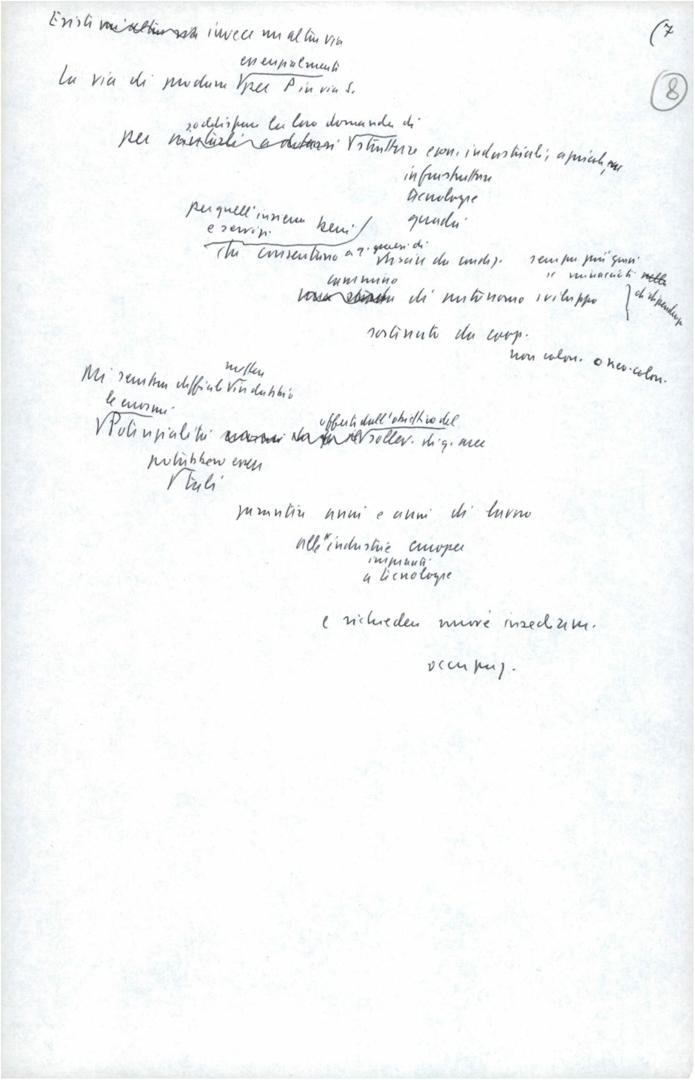 (7
8
Esiste invece un'altra via
essenzialmente
La via di produrre per P in via S.
soddisfare la loro domanda di
per strutture econ. industriali, agricole,
infrastrutture
tecnologie
quadri
per quell'insieme beni
e servizi
che consentano a q. paesi di
uscire da condiz. sempre più gravi
e minacciati
cammino
di autonomo sviluppo
di dipendenza
sostenuto da coop.
non colon. o neo-colon.
Mi sembra difficile
le enormi
Potenzialità offerte dall'obiettivo del
sollev. di q. aree
potrebbero
tali
garantire anni e anni di lavoro
alle industrie europee
impianti
a tecnologie
e richiedere nuove insediam.
occupaz.